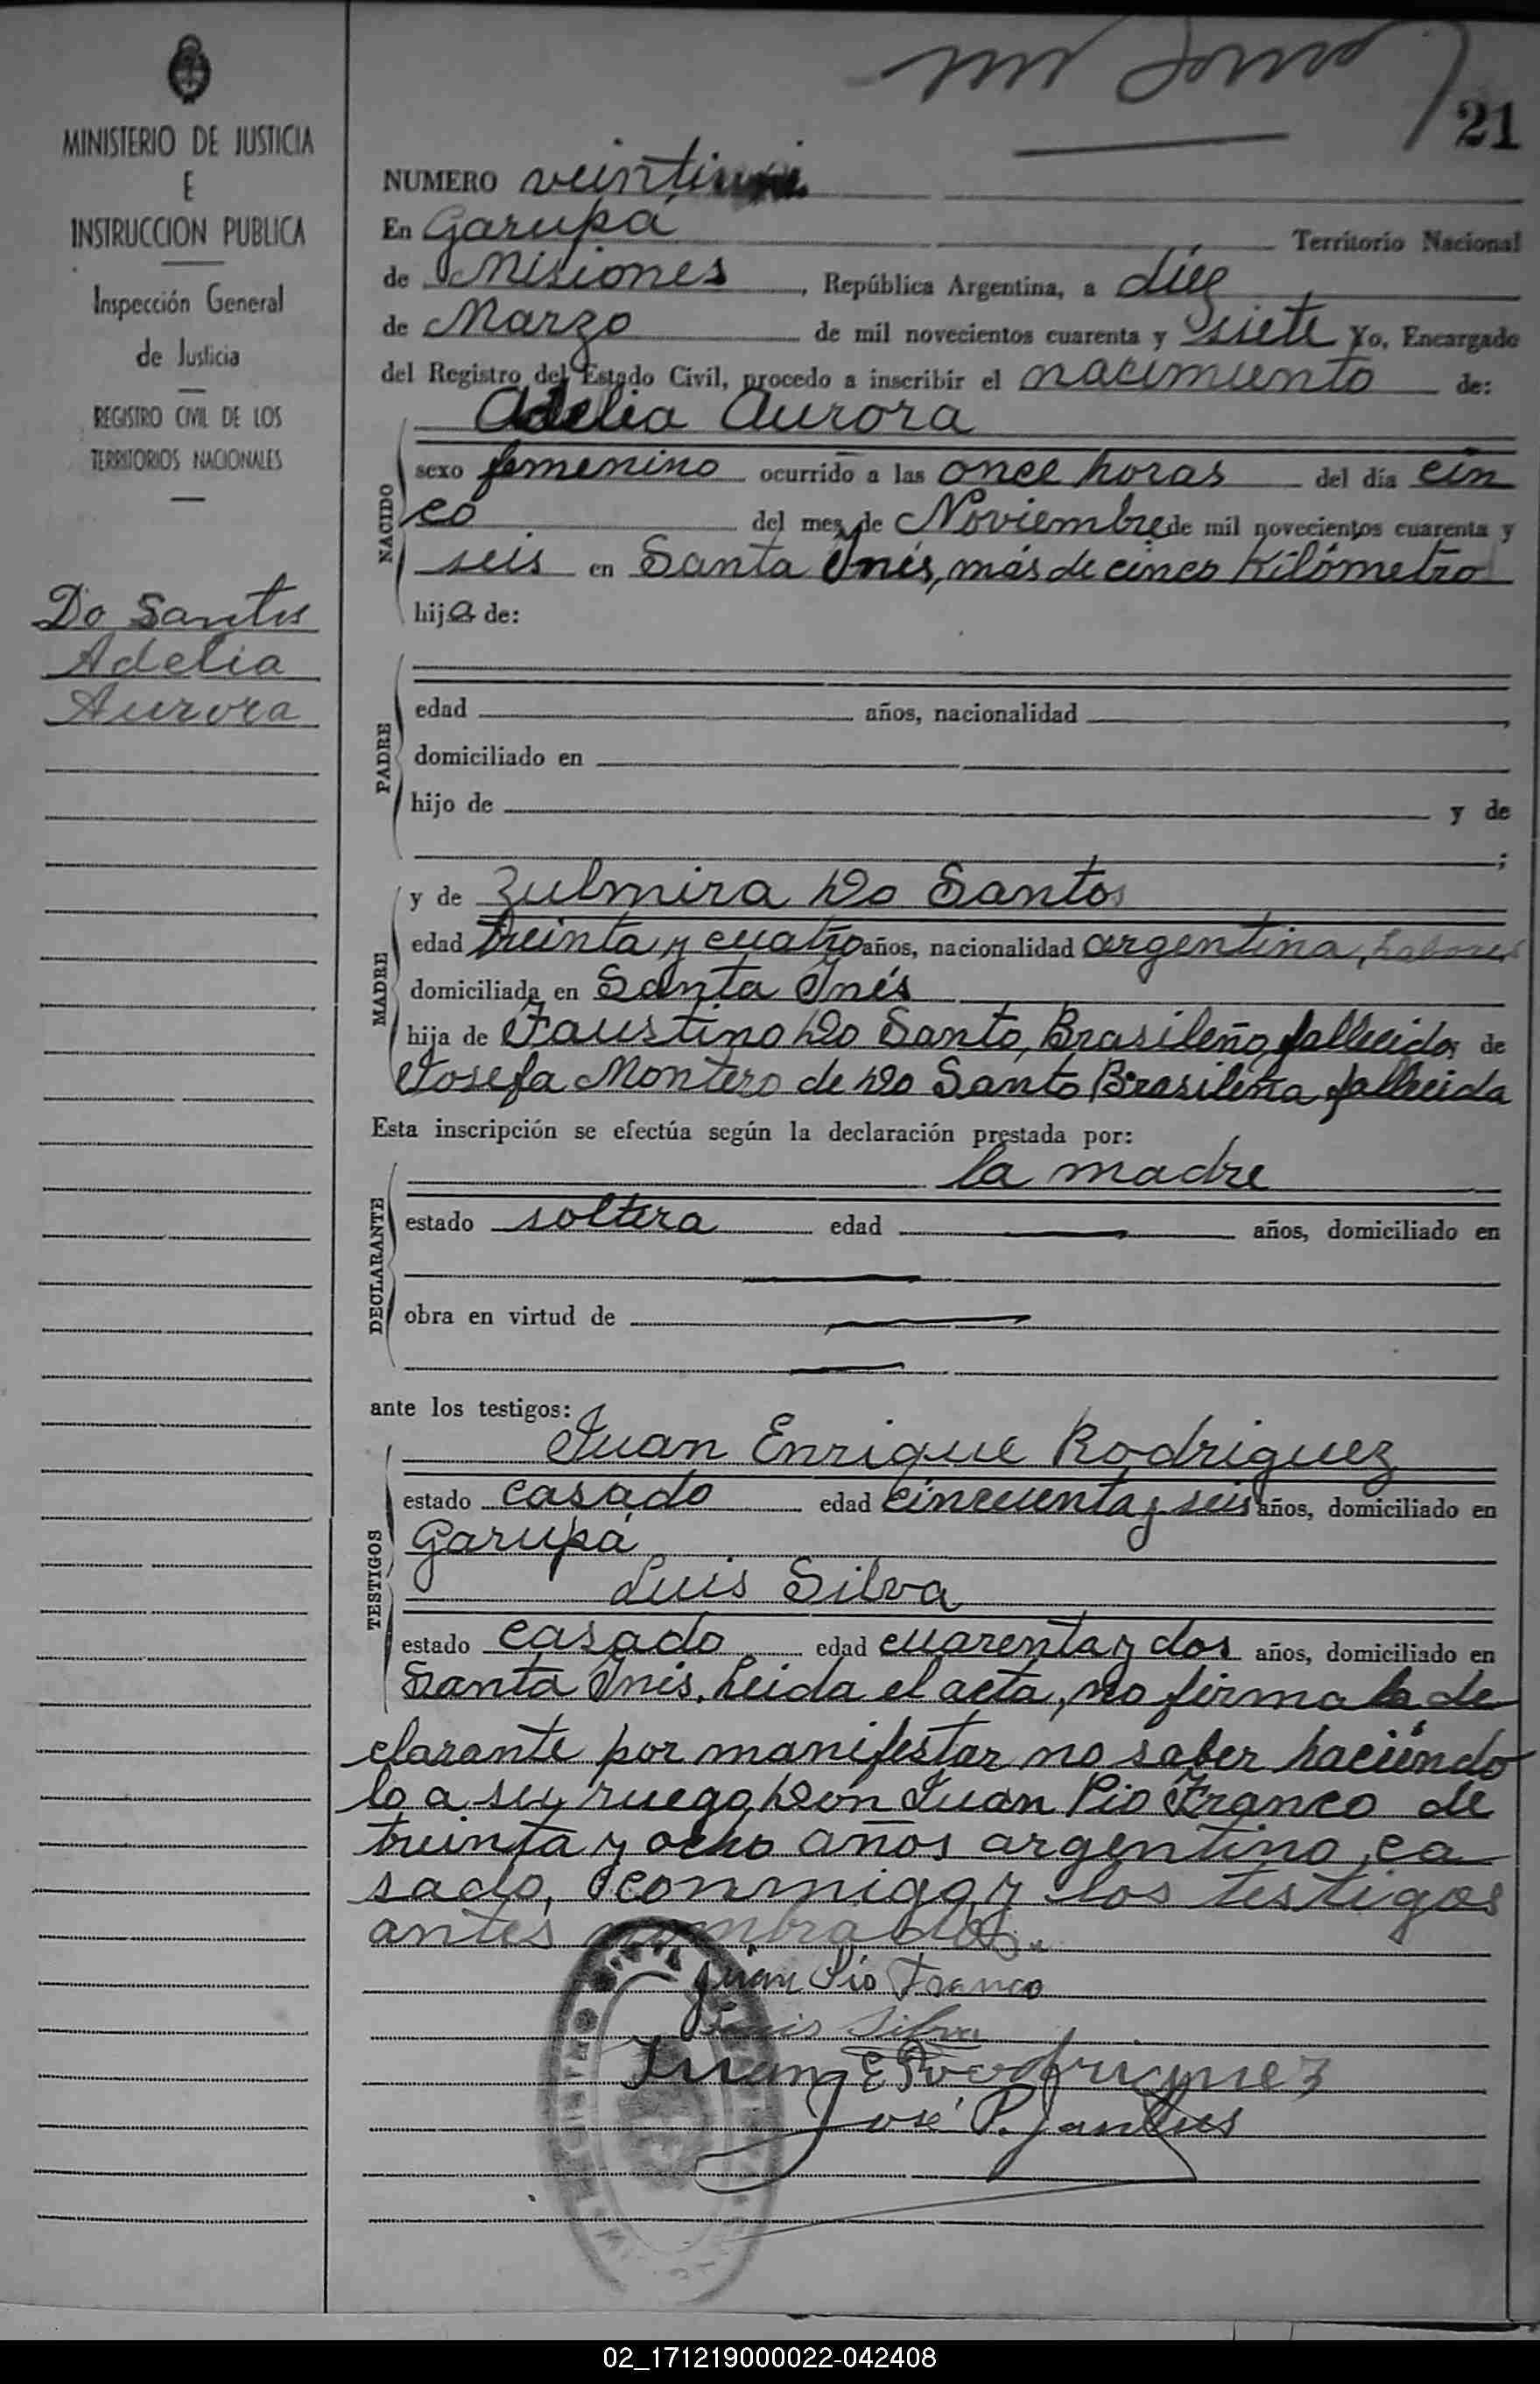 21
MINISTERIO DE JUSTICIA
E
INSTRUCCION PUBLICA
Inspección General
de Justicia
REGISTRO CIVIL DE LOS
TERRITORIOS NACIONALES
Do Santos
Adelia
Aurora
NUMERO
En Garupá Territorio Nacional
de Misiones, República Argentina, a diez
de Marzo de mil novecientos cuarenta y siete Yo, Encargado
del Registro del Estado Civil, procedo a inscribir el nacimiento de:
Adelia Aurora
NACIDO
sexo femenino ocurrido a las once horas del día cin
co del mes de Noviembre de mil novecientos cuarenta y
seis en Santa Inés, más de cinco Kilómetro
hija de:
PADRE
edad años, nacionalidad ,
domiciliado en
hijo de y de
;
MADRE
y de Zulmira Do Santos
edad treinta y cuatro años, nacionalidad argentina, labores
domiciliada en Santa Inés
hija de Faustino Do Santo, Brasileño, fallecido, de
Josefa Montero de Do Santo Brasileña fallecida
Esta inscripción se efectúa según la declaración prestada por:
DECLARANTE
la madre
estado soltera edad años, domiciliado en
obra en virtud de
ante los testigos:
TESTIGOS
Juan Enrique Rodriguez
estado casado edad cincuenta y seis años, domiciliado en
Garupá
Luis Silva
estado casado edad cuarenta y dos años, domiciliado en
Santa Inés. Leida el acta, no firma la de
clarante por manifestar no saber haciéndo
lo a su ruego Don Juan Pio Franco de
treinta y ocho años argentino, ca
sado, conmigo y los testigos
antes nombrados.
Juan Pío Franco
Luis Silva
Juan E Rodriguez
José P.
02_171219000022-042408